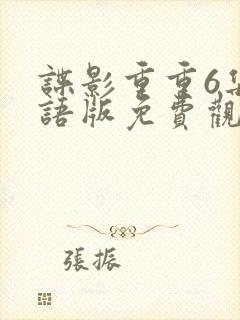 諜影重重6集
語版免費觀
張振